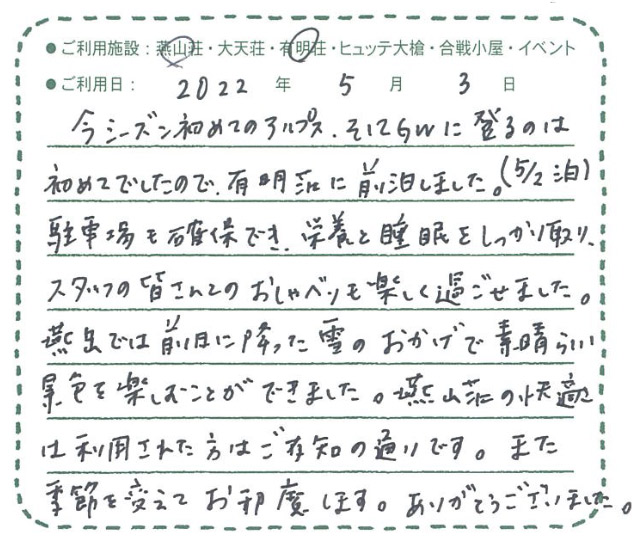 ●ご利用施設：燕山荘・大天荘・有明荘・ヒュッテ大槍・合戦小屋・イベント
●ご利用日： 2022 年 5 月 3 日
今シーズン初めてのアルプス、そしてGWに登るのは
初めてでしたので、有明荘に前泊しました。(5/2 泊)
駐車場も確保でき、栄養と睡眠をしっかり取り、
スタッフの皆さんとのおしゃべりも楽しく過ごせました。
燕岳では前日に降った雪のおかげで素晴らしい
景色を楽しむことができました。燕山荘の快適さ
は利用された方はご存知の通りです。また
季節を変えてお邪魔します。ありがとうございました。